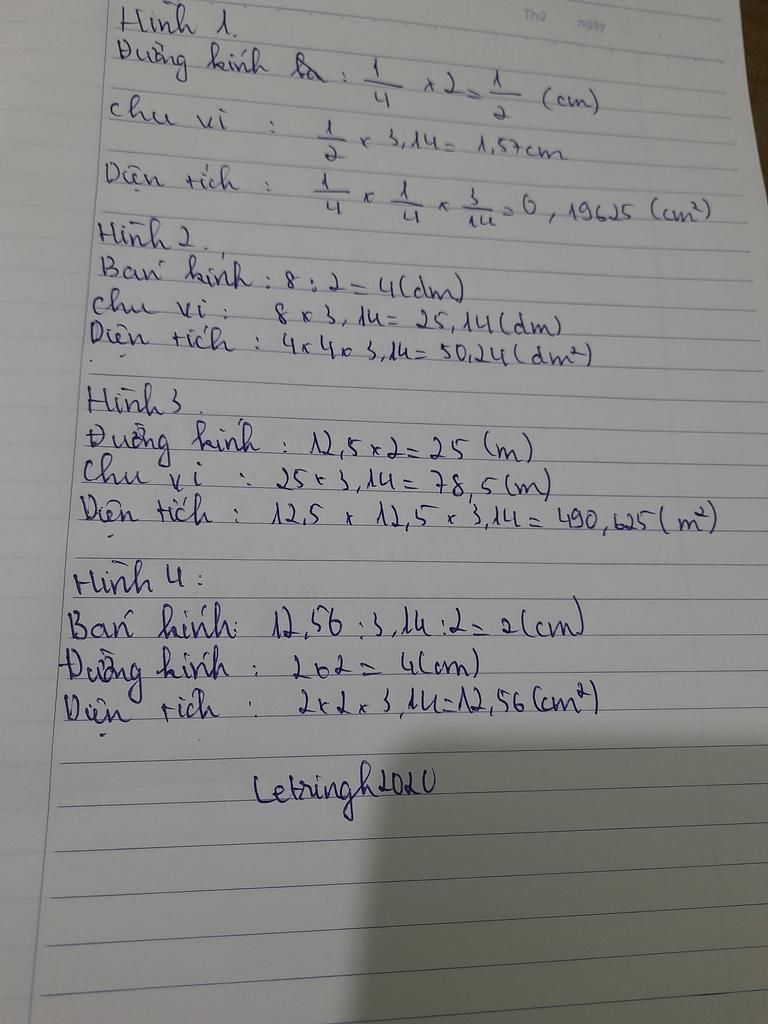 Thứ ngày
Hình 1.
Đường kính là : 1/4 × 2 = 1/2 (cm)
chu vi : 1/2 × 3,14 = 1,57cm
Diện tích : 1/4 × 1/4 × 3/14 = 0,19625 (cm²)
Hình 2.
Bán kính : 8 : 2 = 4(dm)
chu vi : 8 × 3,14 = 25,14(dm)
Diện tích : 4×4× 3,14 = 50,24(dm²)
Hình 3.
Đường kính : 12,5 × 2 = 25 (m)
chu vi : 25 × 3,14 = 78,5(m)
Diện tích : 12,5 × 12,5 × 3,14 = 490,625(m²)
Hình 4 :
Bán kính: 12,56 : 3,14 : 2 = 2(cm)
Đường kính : 2×2 = 4(cm)
Diện tích : 2×2× 3,14=12,56(cm²)
Letringh2020